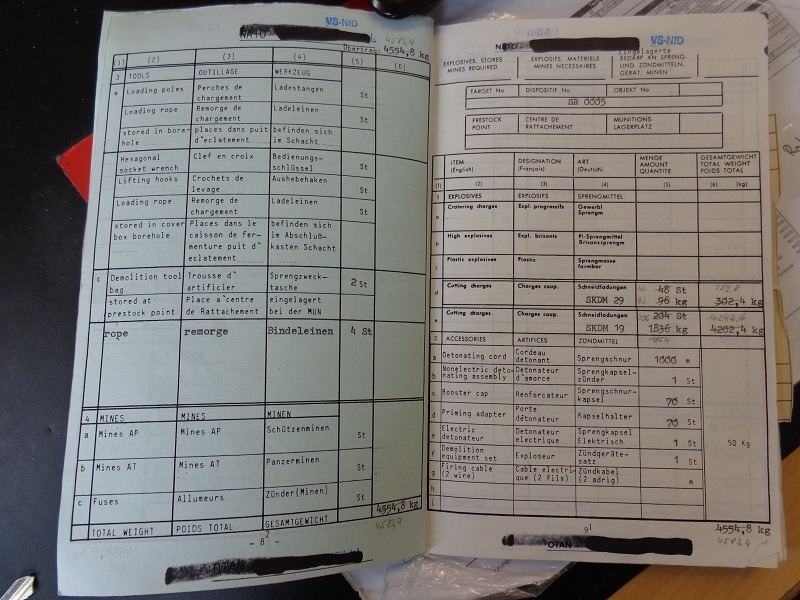 VS-NfD
NATO
4583,4
Übertrag: 4554,8 kg
(1) (2) (3) (4) (5) (6)
3 TOOLS OUTILLAGE WERKZEUG
a Loading poles Perches de chargement Ladestangen St
Loading rope Remorge de chargement Ladeleinen St
stored in bore-hole places dans puit d`eclatement befinden sich im Schacht
Hexagonal socket wrench Clef en croix Bedienungs-schlüssel St
Lifting hooks Crochets de levage Aushebehaken St
Loading rope Remorge de chargement Ladeleinen St
stored in cover box borehole Places dans le caisson de fer-menture puit d`eclatement befinden sich im Abschluß-kasten Schacht
c Demolition tool bag Trousse d`artificier Sprengzweck-tasche 2 St
stored at prestock point Place a`centre de Rattachement eingelagert bei der MUN
rope remorge Bindeleinen 4 St
4 MINES MINES MINEN
a Mines AP Mines AP Schützenminen St
b Mines AT Mines AT Panzerminen St
c Fuses Allumeurs Zünder(Minen) St
4554,8 kg
TOTAL WEIGHT POIDS TOTAL GESAMTGEWICHT
4583,4
- 8² -
OTAN
VS-NfD
NATO
EXPLOSIVES, STORES MINES REQUIRED
EXPLOSIFS, MATERIELS MINES NECESSAIRES
Eingelagerte
BEDARF AN SPRENG- UND ZÜNDMITTELN, GERÄT, MINEN
TARGET No. DISPOSITIF No. OBJEKT No
SR 0005
PRESTOCK POINT CENTRE DE RATTACHEMENT MUNITIONS-LAGERPLATZ
ITEM (English) DESIGNATION (Français) ART (Deutsch) MENGE AMOUNT QUANTITE GESAMTGEWICHT TOTAL WEIGHT POIDS TOTAL
(1) (2) (3) (4) (5) (6) (kg)
1 EXPLOSIVES EXPLOSIFS SPRENGMITTEL
a Cratering charges Expl. progressifs Gewerbl Sprengm
b High explosives Expl. brisants Pi-Sprengmittel Brisanzsprengm
c Plastic explosives Plastic Sprengmasse formbar
d Cutting charges Charges coup. Schneidladungen 48 St
SKDM 29 96 kg 302,4 kg
e Cutting charges Charges coup. Schneidladungen 204 St
SKDM 19 1836 kg 4202,4 kg
2 ACCESSORIES ARTIFICES ZÜNDMITTEL
a Detonating cord Cordeau detonant Sprengschnur 1000 m
b Nonelectric deto-nating assembly Detonateur d`amorce Sprengkapsel-zünder 1 St
c Booster cap Renforcateur Sprengschnur-kapsel 70 St
d Priming adapter Porte détonateur Kapselhalter 70 St
e Electric detonateur Detonateur electrique Sprengkapsel Elektrisch 1 St
50 Kg
f Demolition equipment set Exploseur Zündgeräte-satz 1 St
g Firing cable (2 wire) Cable electri-que (2 fils) Zündkabel (2 adrig) m
h
i
4554,8 kg
4583,4
9¹
OTAN